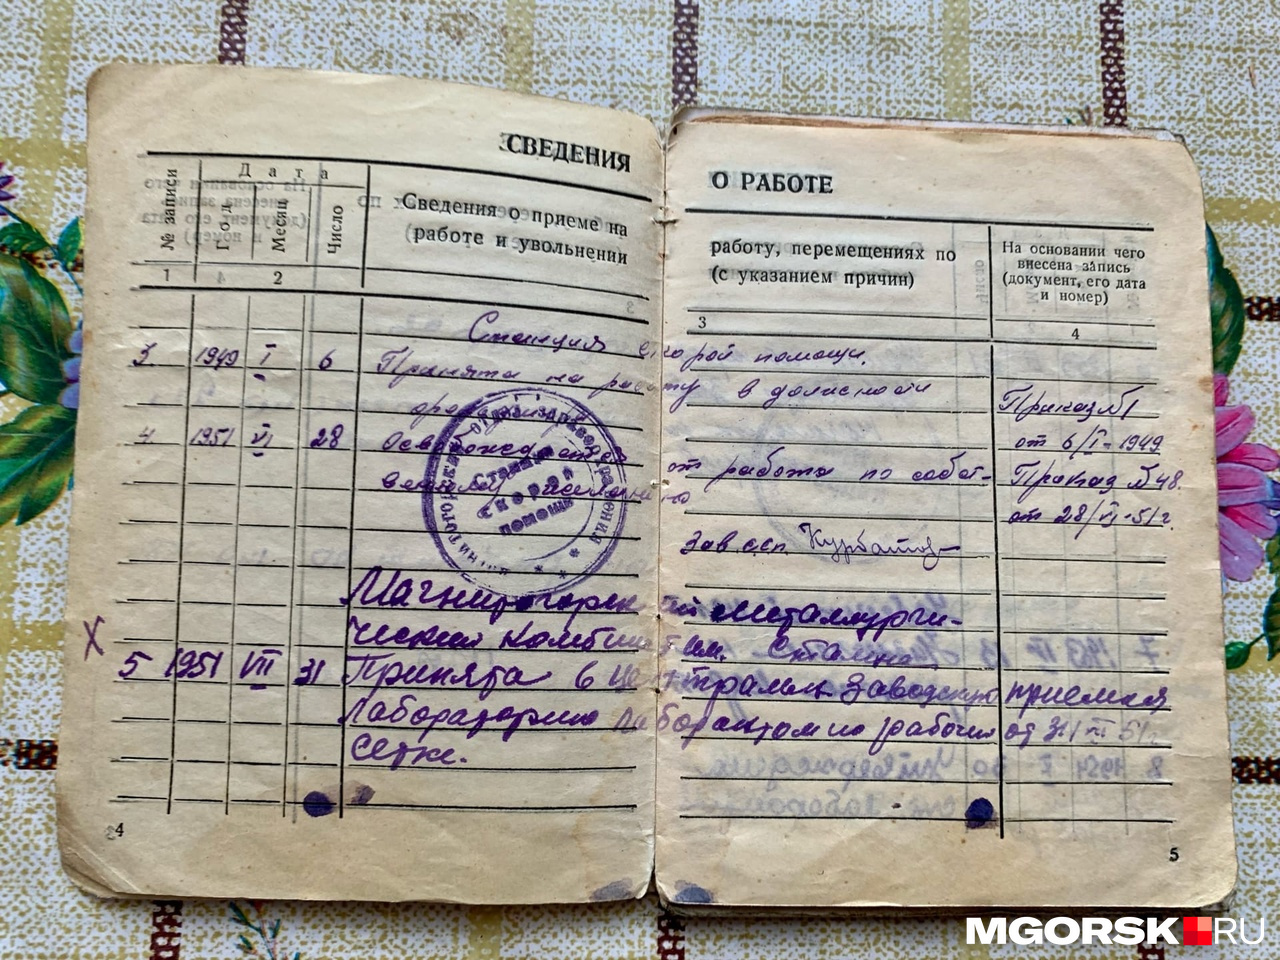 СВЕДЕНИЯ О РАБОТЕ
№ записи
Дата
Год
Месяц
Число
Сведения о приеме на работу, перемещениях по
работе и увольнении (с указанием причин)
На основании чего
внесена запись
(документ, его дата
и номер)
1 2 3 4
Станция скорой помощи.
3. 1949 I 6 Принята на работу в должности
Приказ №1
от 6/I-1949
4 1951 VI 28 Освобождается от работы по собст-
венному
Приказ №48.
от 28/VI-51г.
Зав ссп Курбатов
Станция
скорой
помощи
Магнитогорский металлурги-
ческий комбинат им. Сталина
5 1951 VII 31 Принята в центральн. заводскую приемная
лабораторию лаборантом по рабочей от 31/VII 51г
сетке.
4
5
MGORSK RU